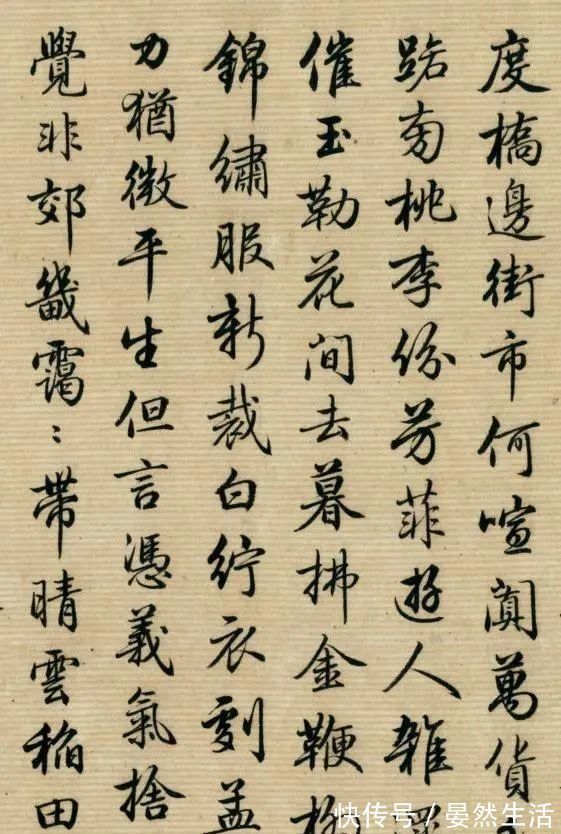 度橋邊街市何喧闐萬貨
路旁桃李份芳菲遊人雜
催玉勒花間去暮拂金鞭柳
錦繡服新裁白紵衣劇孟
力猶微平生但言憑義氣捨
覺非郊畿靄〻帶晴雲稻田
快传号 / 晏然生活